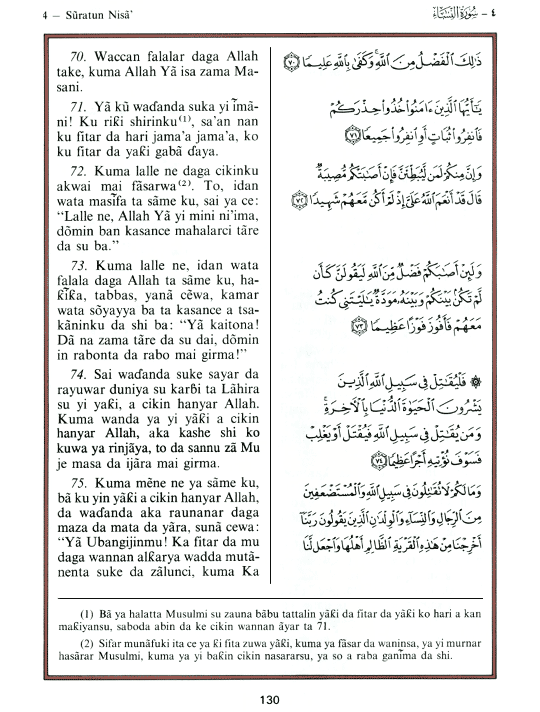 4 — Sūratun Nisā'
٤ - سُورَةُ النِّسَاءِ
70. Waccan falalar daga Allah
take, kuma Allah Yā isa zama Ma-
sani.
71. Yā kū waɗanda suka yi īmā-
ni! Ku riƙi shirinku(1), sa'an nan
ku fitar da hari jama'a jama'a, ko
ku fitar da yaƙi gabā ɗaya.
72. Kuma lalle ne daga cikinku
akwai mai fāsarwa(2). To, idan
wata masīfa ta sāme ku, sai ya ce:
"Lalle ne, Allah Yā yi mini ni'ima,
dōmin ban kasance mahalarci tāre
da su ba."
73. Kuma lalle ne, idan wata
falala daga Allah ta sāme ku, ha-
ƙīƙa, tabbas, yanā cēwa, kamar
wata sōyayya ba ta kasance a tsa-
kāninku da shi ba: "Yā kaitona!
Dā na zama tāre da su dai, dōmin
in rabonta da rabo mai girma!"
74. Sai waɗanda suke sayar da
rayuwar duniya su karɓi ta Lāhira
su yi yaƙi, a cikin hanyar Allah.
Kuma wanda ya yi yāƙi a cikin
hanyar Allah, aka kashe shi ko
kuwa ya rinjāya, to da sannu zā Mu
je masa da ijāra mai girma.
75. Kuma mēne ne ya sāme ku,
bā ku yin yāƙi a cikin hanyar Allah,
da waɗanda aka raunanar daga
maza da mata da yāra, sunā cewa:
"Yā Ubangijinmu! Ka fitar da mu
daga wannan alƙarya wadda mutā-
nenta suke da zālunci, kuma Ka
ذَٰلِكَ الْفَضْلُ مِنَ اللَّهِ وَكَفَىٰ بِاللَّهِ عَلِيمًا ٧٠
يَا أَيُّهَا الَّذِينَ ءَامَنُوا خُذُوا حِذْرَكُمْ
فَانفِرُوا ثُبَاتٍ أَوِ انفِرُوا جَمِيعًا ٧١
وَإِنَّ مِنكُمْ لَمَن لَّيُبَطِّئَنَّ فَإِنْ أَصَابَتْكُم مُّصِيبَةٌ
قَالَ قَدْ أَنْعَمَ اللَّهُ عَلَيَّ إِذْ لَمْ أَكُن مَّعَهُمْ شَهِيدًا ٧٢
وَلَئِنْ أَصَابَكُمْ فَضْلٌ مِّنَ اللَّهِ لَيَقُولَنَّ كَأَن
لَّمْ تَكُنْ بَيْنَكُمْ وَبَيْنَهُ مَوَدَّةٌ يَا لَيْتَنِي كُنتُ
مَعَهُمْ فَأَفُوزَ فَوْزًا عَظِيمًا ٧٣
۞ فَلْيُقَاتِلْ فِي سَبِيلِ اللَّهِ الَّذِينَ
يَشْرُونَ الْحَيَاةَ الدُّنْيَا بِالْآخِرَةِ
وَمَن يُقَاتِلْ فِي سَبِيلِ اللَّهِ فَيُقْتَلْ أَوْ يَغْلِبْ
فَسَوْفَ نُؤْتِيهِ أَجْرًا عَظِيمًا ٧٤
وَمَا لَكُمْ لَا تُقَاتِلُونَ فِي سَبِيلِ اللَّهِ وَالْمُسْتَضْعَفِينَ
مِنَ الرِّجَالِ وَالنِّسَاءِ وَالْوِلْدَانِ الَّذِينَ يَقُولُونَ رَبَّنَا
أَخْرِجْنَا مِنْ هَٰذِهِ الْقَرْيَةِ الظَّالِمِ أَهْلُهَا وَاجْعَل لَّنَا
(1) Bā ya halatta Musulmi su zauna bābu tattalin yāƙi da fitar da yāƙi ko hari a kan
maƙiyansu, saboda abin da ke cikin wannan āyar ta 71.
(2) Sifar munāfuki ita ce ya ƙi fita zuwa yāƙi, kuma ya fāsar da waninsa, ya yi murnar
hasārar Musulmi, kuma ya yi baƙin cikin nasararsu, ya so a raba ganīma da shi.
130